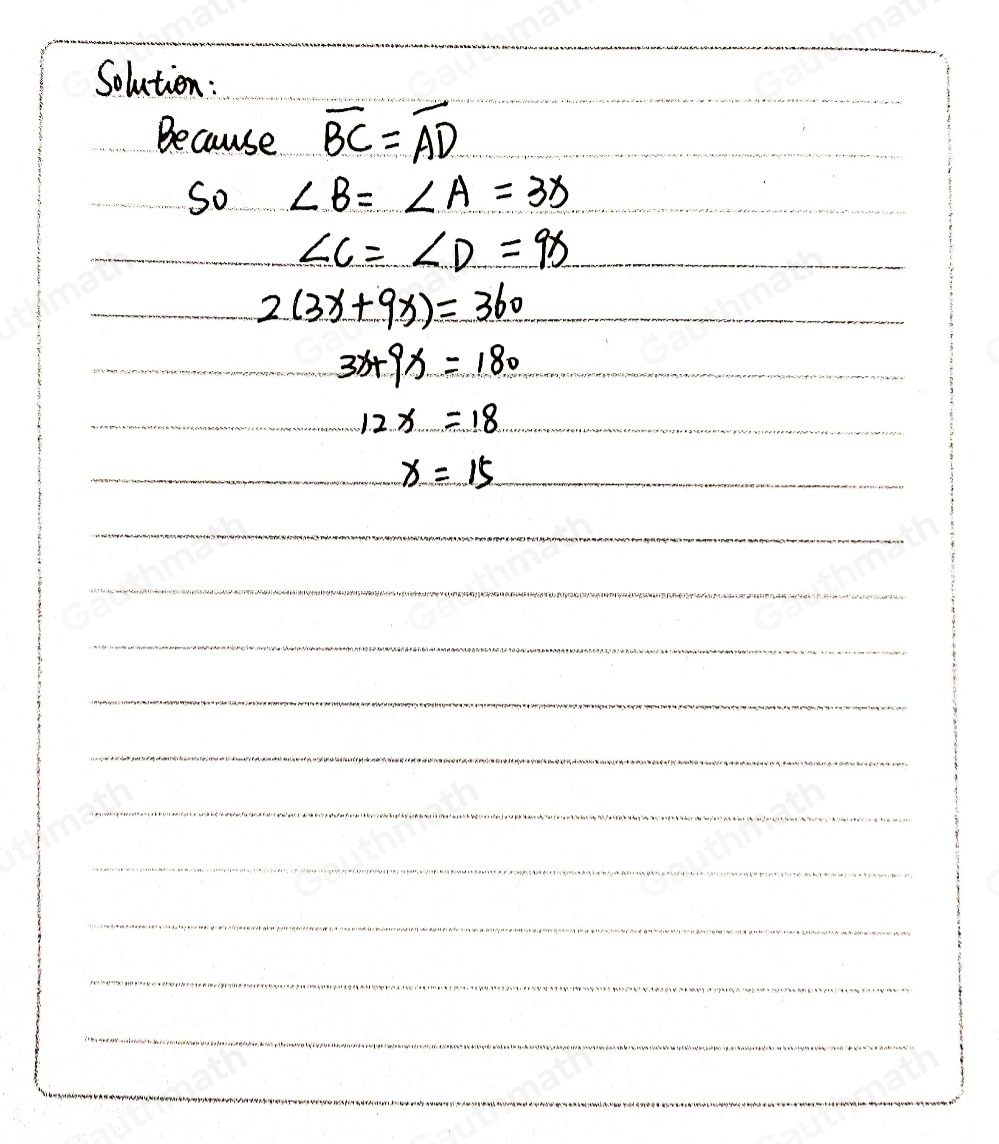 Solution:
Because BC = AD
So ∠B = ∠A = 3x
∠C = ∠D = 9x
2(3x+9x) = 360
3x+9x = 180
12x = 18
x = 15